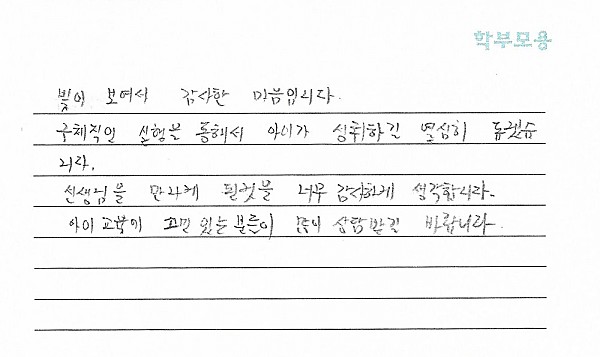 학부모용
빛이 보여서 감사한 마음입니다.
구체적인 실행을 통해서 아이가 성취하길 열심히 돕겠습
니다.
선생님을 만나게 된것을 너무 감사하게 생각합니다.
아이 교육에 고민 있는 분들이 많이 상담받길 바랍니다.